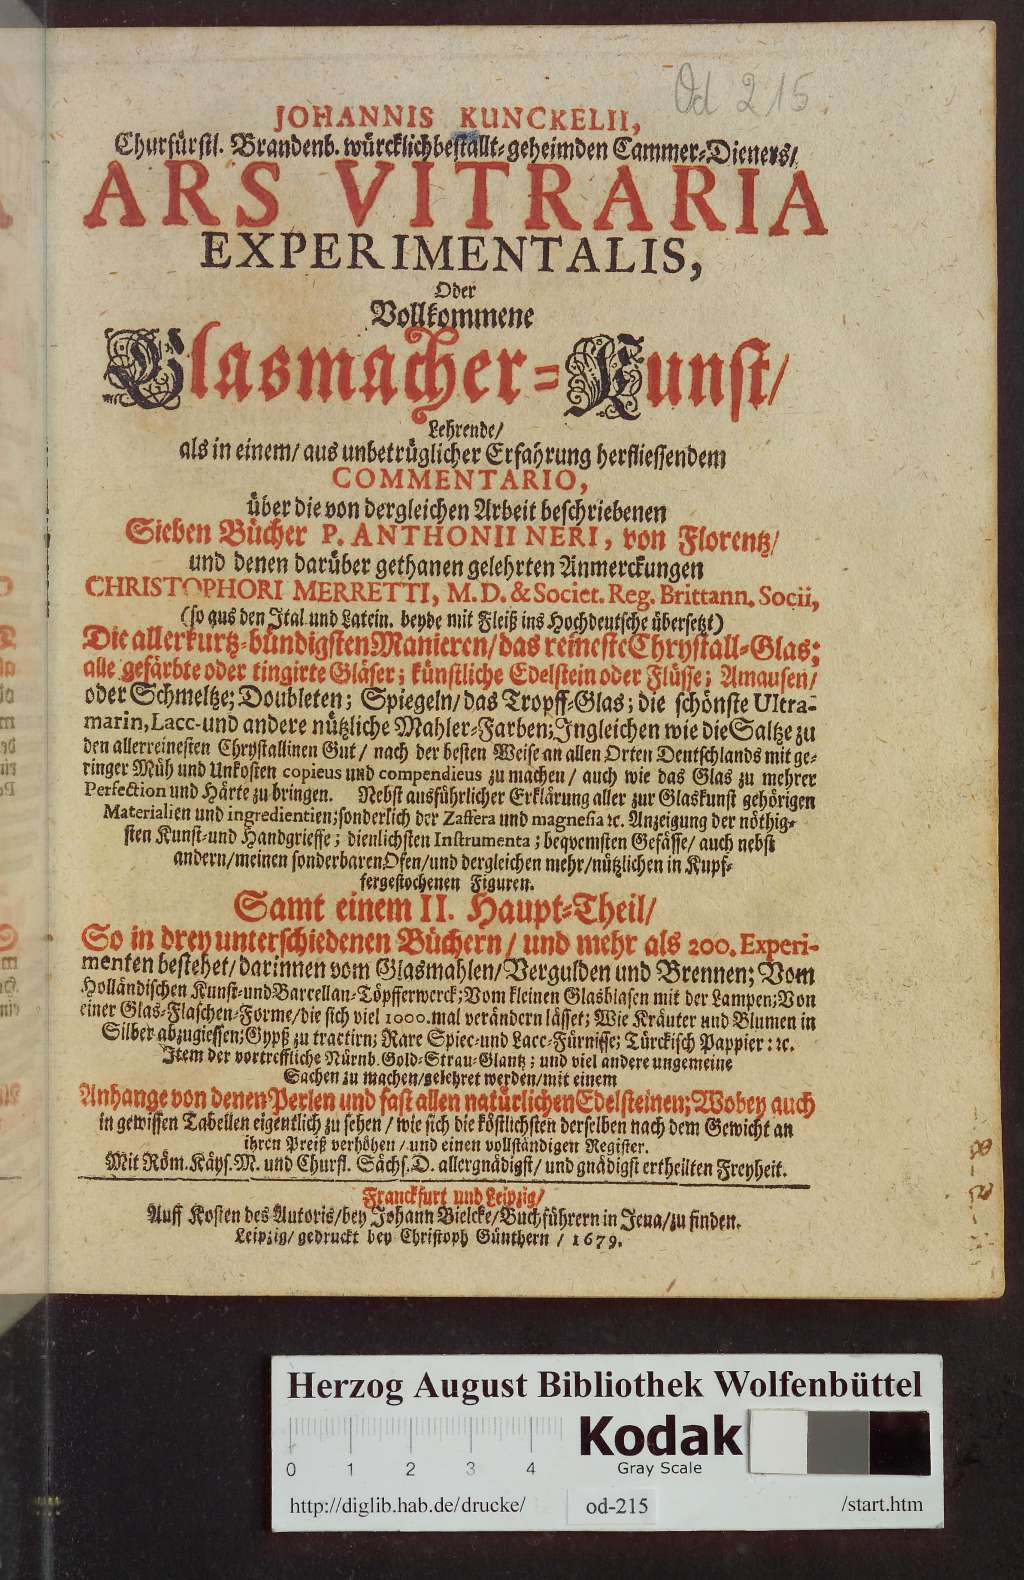 Od 215.
JOHANNIS KUNCKELII,
Churfürstl. Brandenb. würcklich bestallt-geheimden Cammer-Dieners/
ARS VITRARIA
EXPERIMENTALIS,
Oder
Vollkommene
Glasmacher-Kunst/
Lehrende/
als in einem/ aus unbetrüglicher Erfahrung herfliessendem
COMMENTARIO,
über die von dergleichen Arbeit beschriebenen
Sieben Bücher P. ANTHONII NERI, von Florentz/
und denen darüber gethanen gelehrten Anmerckungen
CHRISTOPHORI MERRETTI, M. D. & Societ. Reg. Brittann. Socii,
(so aus den Ital. und Latein. beyde mit Fleiß ins Hochdeutsche übersetzt)
Die allerkurtz-bündigsten Manieren/ das reineste Chrystall-Glas;
alle gefärbte oder tingirte Gläser; künstliche Edelstein oder Flüsse; Amausen/
oder Schmeltze; Doubleten; Spiegeln/ das Tropff-Glas; die schönste Ultra-
marin, Lacc- und andere nützliche Mahler-Farben; Ingleichen wie die Saltze zu
den allerreinesten Chrystallinen Gut/ nach der besten Weise an allen Orten Deutschlands mit ge-
ringer Müh und Unkosten copieus und compendieus zu machen/ auch wie das Glas zu mehrer
Perfection und Härte zu bringen. Nebst ausführlicher Erklärung aller zur Glaskunst gehörigen
Materialien und ingredientien; sonderlich der Zaffera und magnesia ꝛc. Anzeigung der nöthig-
sten Kunst- und Handgrieffe; dienlichsten Instrumenta; beqvemsten Gefässe/ auch nebst
andern/ meinen sonderbaren Ofen/ und dergleichen mehr/ nützlichen in Kupf-
fer gestochenen Figuren.
Samt einem II. Haupt-Theil/
So in drey unterschiedenen Büchern/ und mehr als 200. Experi-
menten bestehet/ darinnen vom Glasmahlen/ Vergulden und Brennen; Vom
Holländischen Kunst- und Barcellan-Töpfferwerck; Vom kleinen Glasblasen mit der Lampen; Von
einer Glas-Flaschen-Forme/ die sich viel 1000. mal verändern lässet; Wie Kräuter und Blumen in
Silber abzugiessen; Gypß zu tractirn; Rare Spiec- und Lacc-Fürnisse; Türckisch Pappier: ꝛc.
Item der vortreffliche Nürnb. Gold-Strau-Glantz; und viel andere ungemeine
Sachen zu machen/ gelehret werden/ mit einem
Anhange von denen Perlen und fast allen natürlichen Edelsteinen; Wobey auch
in gewissen Tabellen eigentlich zu sehen/ wie sich die köstlichsten derselben nach dem Gewicht an
ihren Preiß verhöhen/ und einen vollständigen Register.
Mit Röm. Käys. M. und Churfl. Sächs. D. allergnädigst/ und gnädigst ertheilten Freyheit.
Franckfurt und Leipzig/
Auff Kosten des Autoris/ bey Johann Bielcke/ Buchführern in Jena/ zu finden.
Leipzig/ gedruckt bey Christoph Günthern/ 1679.
Herzog August Bibliothek Wolfenbüttel
Kodak
Gray Scale
0 1 2 3 4
http://diglib.hab.de/drucke/ od-215 /start.htm